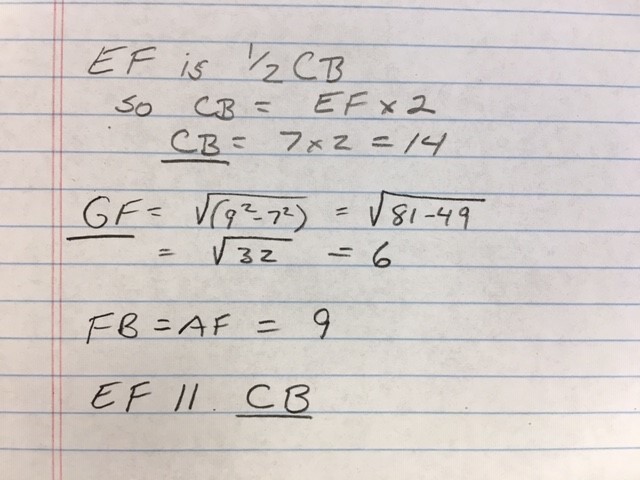 EF is 1/2 CB
so CB = EF x 2
CB = 7 x 2 = 14
GF = √(9²-7²) = √81-49
= √32 = 6
FB = AF = 9
EF || CB